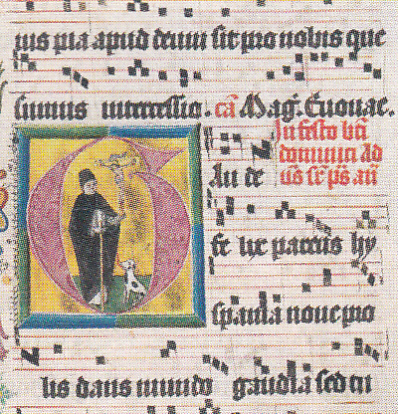 ius pia apud deum sit pro nobis que
sumus intercessio. ca Mag. Euouae.
In festo bti
dominici Ad
Au de us sr ps añ
fe lix parens hy
spania noue pro
lis dans mundo gaudia sed tu